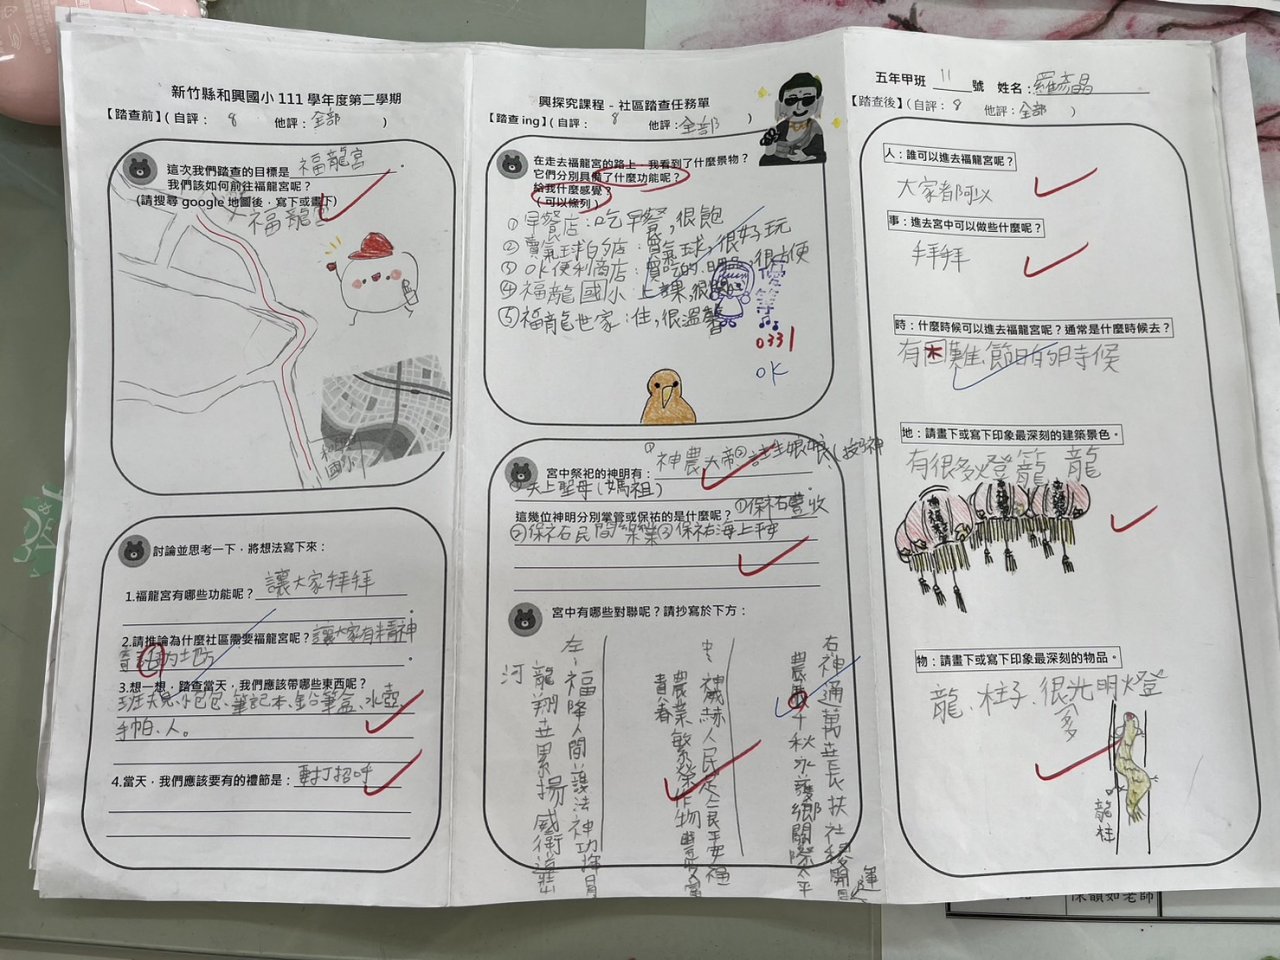 新竹縣和興國小 111 學年度第二學期
【踏查前】(自評： 8 他評：全部 )
這次我們踏查的目標是 福龍宮 .
我們該如何前往福龍宮呢？
(請搜尋 google 地圖後，寫下或畫下)
福龍宮
討論並思考一下，將想法寫下來：
1.福龍宮有哪些功能呢？ 讓大家拜拜
2.請推論為什麼社區需要福龍宮呢？ 讓大家有精神
寄託的地方
3.想一想，踏查當天，我們應該帶哪些東西呢？
小包包、筆記本、鉛筆盒、水壺、
手帕、人。
4.當天，我們應該要有的禮節是： 要打招呼
興探究課程 - 社區踏查任務單
【踏查 ing】(自評： 8 他評：全部 )
在走去福龍宮的路上，我看到了什麼景物？
它們分別具備了什麼功能呢？
給我什麼感覺？
(可以條列)
①早餐店：吃早餐，很飽
②賣氣球的店：買氣球，很好玩
③OK便利商店：買吃的、很方便
④福龍國小：上課，很
⑤福龍世家：住，很溫馨
0331
OK
宮中祭祀的神明有： ①神農大帝②註生娘娘
③天上聖母(媽祖)
這幾位神明分別掌管或保祐的是什麼呢？ ①保祐豐收
②保祐民間 ③保祐海上平安
宮中有哪些對聯呢？請抄寫於下方：
右：神通萬 長扶社稷開 運
農 千秋永護鄉關 太平
中：神威赫 人民 平安福
農業繁榮作物豐
青春
左：福降人間護法神功
龍翔 累揚威衛
河
五年甲班 11 號 姓名：羅彥晶
【踏查後】(自評： 8 他評：全部 )
人：誰可以進去福龍宮呢？
大家都可以
事：進去宮中可以做些什麼呢？
拜拜
時：什麼時候可以進去福龍宮呢？通常是什麼時候去？
有困難、節日的時候
地：請畫下或寫下印象最深刻的建築景色。
有很多燈籠、龍
物：請畫下或寫下印象最深刻的物品。
龍、柱子、很多光明燈
龍柱